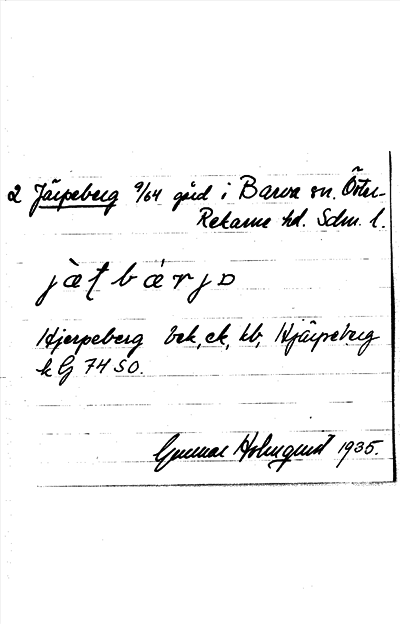 2 Järpeberg 9/64 gård i Barva sn. Öster-
Rekarne hd. Sdm. l.
Hjerpeberg bek, ek, kb, Hjärpeberg
k G 74 SO.
Gunnar Holmquist 1935.